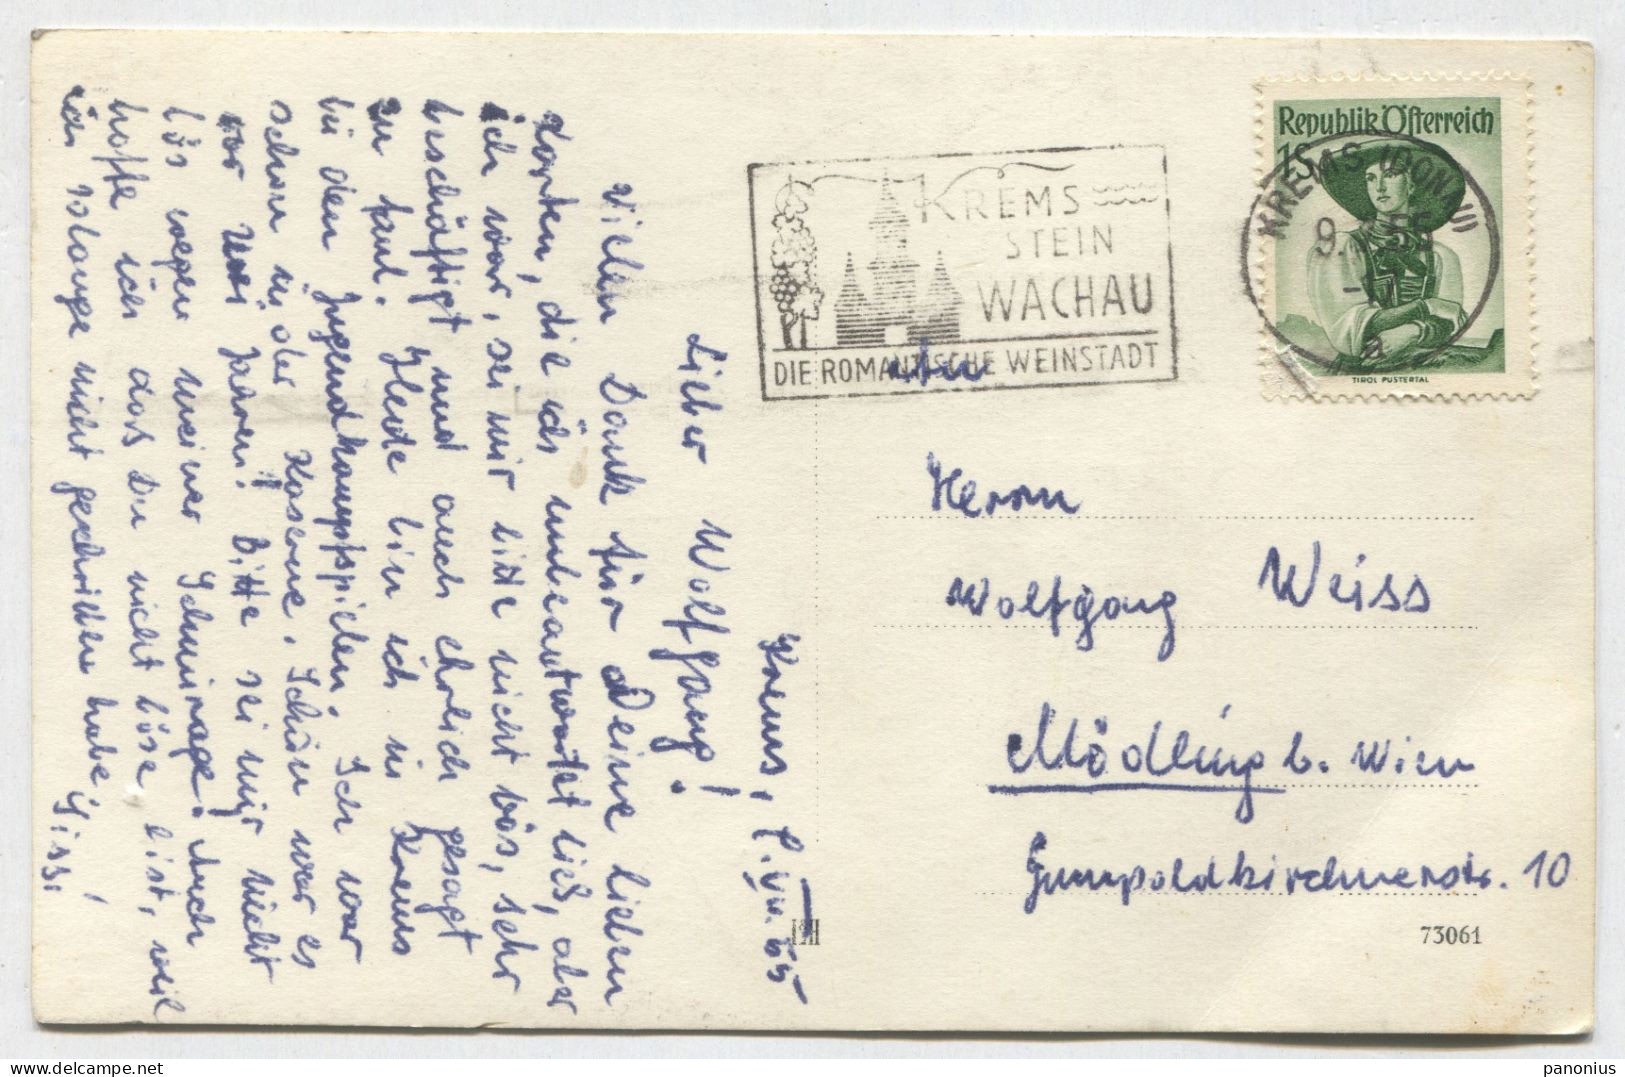 Krems, 8. VII. 55
Lieber Wolfgang!
Vielen Dank für Deine lieben
Karten, die ich unbeantwortet ließ, aber
ich war, sei mir bitte nicht bös, sehr
beschäftigt und auch ehrlich gesagt
zu faul. Heute bin ich in Krems
bei den Jugendkampfspielen. Ich war
schon in der Kaserne. Schön war es
vor Jahren! Bitte sei mir nicht
bös wegen meiner Schmirage. Auch
hoffe ich daß Du nicht böse bist, weil
ich solange nicht geschrieben habe!
Sissi
KREMS
STEIN
WACHAU
DIE ROMANTISCHE WEINSTADT
Republik Österreich
1S
TIROL PUSTERTAL
KREMS (DONAU)
9. 55
a
An
Herrn
Wolfgang Weiss
Mödling b. Wien
Gumpoldskirchnerstr. 10
73061
panonius